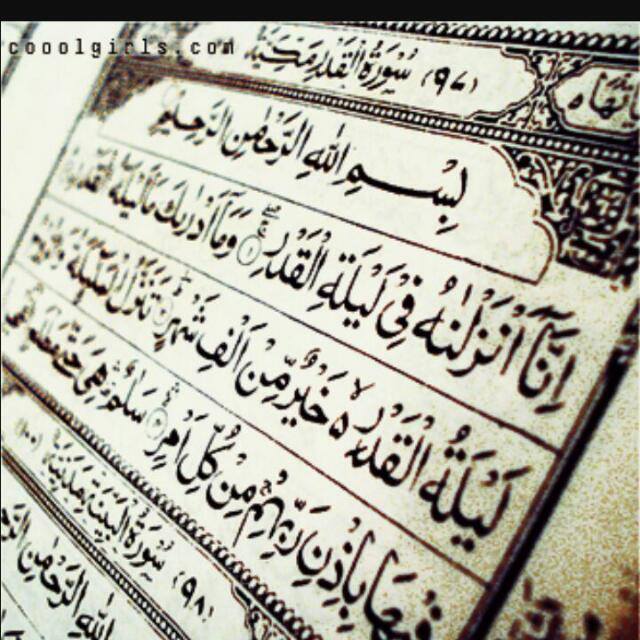 cooolgirls.com
(٩٧) سُوْرَةُ الْقَدْرِ مَكِّيَّةٌ
بِسْمِ اللهِ الرَّحْمٰنِ الرَّحِيْمِ
اِنَّاۤ اَنْزَلْنٰهُ فِيْ لَيْلَةِ الْقَدْرِ ۝١ وَمَاۤ اَدْرٰىكَ مَا لَيْلَةُ الْقَدْرِ
لَيْلَةُ الْقَدْرِ ۙ خَيْرٌ مِّنْ اَلْفِ شَهْرٍ ۝ تَنَزَّلُ الْمَلٰٓئِكَةُ
فِيْهَا بِاِذْنِ رَبِّهِمْ مِنْ كُلِّ اَمْرٍ ۝ سَلٰمٌ هِيَ حَتّٰى
(٩٨) سُوْرَةُ الْبَيِّنَةِ مَدَنِيَّةٌ (١٠٠)
اللهِ الرَّحْمٰنِ